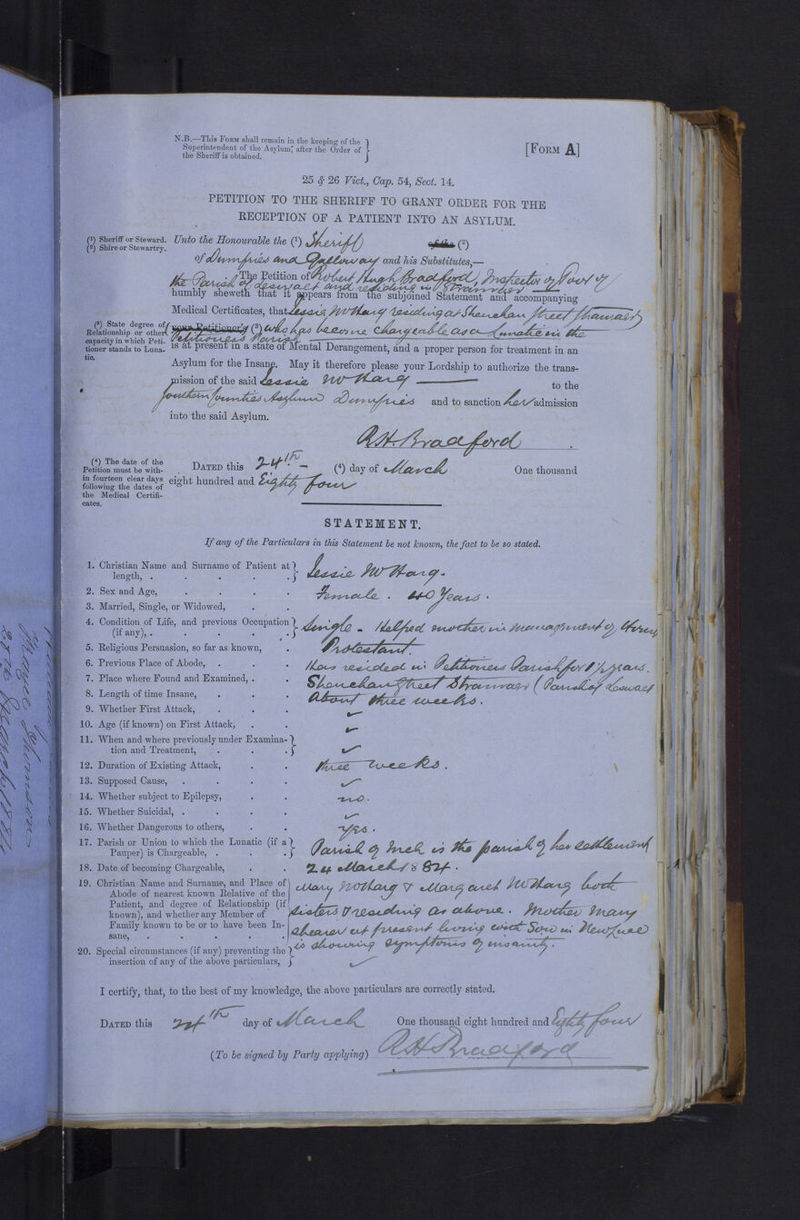 N.B.—This Form shall remain in the keeping of the
Superintendent of the Asylum, after the Order of
the Sheriff is obtained.
[Form A]
25 & 26 Vict., Cap. 54, Sect. 14.
PETITION TO THE SHERIFF TO GRANT ORDER FOR THE
RECEPTION OF A PATIENT INTO AN ASYLUM.
(1) Sheriff or Steward.
(2) Shire or Stewartry.
Unto the Honourable the (1) Sheriff of the (2)
of Dumfries and Galloway and his Substitutes,—
The Petition of Robert Hugh Bradford, Inspector of Poor of
the Parish of Leswalt and residing in Stranraer
humbly sheweth that it appears from the subjoined Statement and accompanying
Medical Certificates, that Jessie McHarg residing at Sheuchan Street Stranraer
(3) State degree of
Relationship or other
capacity in which Peti-
tioner stands to Luna-
tic.
your Petitioner's (3) who has become chargeable as a Lunatic in the
Petitioners Parish
is at present in a state of Mental Derangement, and a proper person for treatment in an
Asylum for the Insane. May it therefore please your Lordship to authorize the trans-
mission of the said Jessie McHarg to the
Southern Counties Asylum Dumfries and to sanction her admission
into the said Asylum.
R H Bradford
(4) The date of the
Petition must be with-
in fourteen clear days
following the dates of
the Medical Certifi-
cates.
Dated this 24th (4) day of March One thousand
eight hundred and Eighty four
STATEMENT.
If any of the Particulars in this Statement be not known, the fact to be so stated.
1. Christian Name and Surname of Patient at length, . Jessie McHarg.
2. Sex and Age, Female. 40 Years.
3. Married, Single, or Widowed,
4. Condition of Life, and previous Occupation (if any), . Single - Helped mother in management of
5. Religious Persuasion, so far as known, Protestant.
6. Previous Place of Abode, Has resided in Petitioners Parish for 1½ years.
7. Place where Found and Examined, Sheuchan Street Stranraer (Parish of Leswalt
8. Length of time Insane, About three weeks.
9. Whether First Attack,
10. Age (if known) on First Attack,
11. When and where previously under Examina-
tion and Treatment,
12. Duration of Existing Attack, three weeks.
13. Supposed Cause,
14. Whether subject to Epilepsy, no.
15. Whether Suicidal,
16. Whether Dangerous to others, yes.
17. Parish or Union to which the Lunatic (if a
Pauper) is Chargeable, Parish of Inch is the parish of her settlement
18. Date of becoming Chargeable, 24 March 1884.
19. Christian Name and Surname, and Place of
Abode of nearest known Relative of the
Patient, and degree of Relationship (if
known), and whether any Member of
Family known to be or to have been In-
sane,
Mary McHarg & Margaret McHarg both
sisters & residing as above. Mother Mary
Shearer at present living with Son in
is showing symptoms of insanity.
20. Special circumstances (if any) preventing the
insertion of any of the above particulars,
I certify, that, to the best of my knowledge, the above particulars are correctly stated.
Dated this 24th day of March One thousand eight hundred and Eighty four
(To be signed by Party applying) R H Bradford